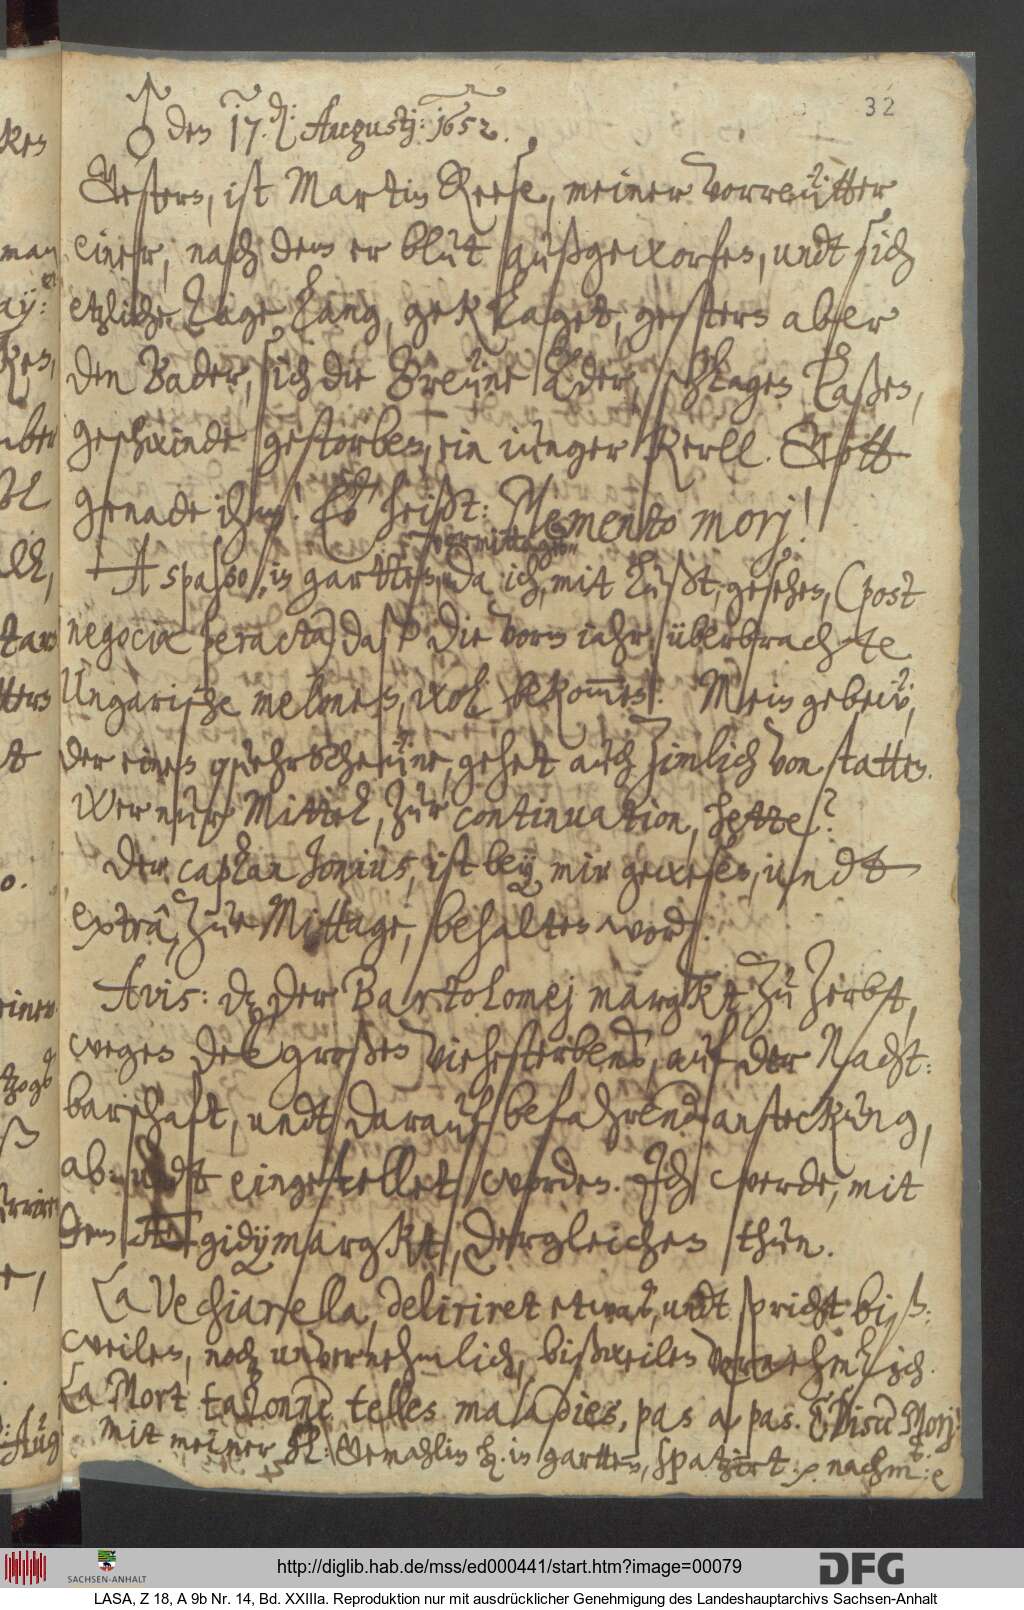 32
♂ den 17. d: Augustj: 1652.
Gestern, ist Martin Reese, meiner Vorreütter
einer, nach dem er blut außgeworfen, undt sich
etzliche Tage lang, geklaget, gestern aber
den Bader, sich die Breüne Ader, schlagen laßen,
geschwinde gestorben, ein iunger Kerll. Gott
genade ihm! Es heißt: Memento morj!
vormittages
A spasso, in gartten, da ich, mit lußt, gesehen, (post
negocia peracta) daß die vorm iahr, überbrachte
Ungarische melonen, wol bekommen. Mein gebeü,
der einen Scheüne, gehet auch zimlich von statten.
Wer nur Mittel, zur continuation, hette?
Der caplan Jonius, ist bey mir gewesen, undt
extrâ, zur Mittage, behalten word.
Avis: dz der Bartolomej margkt zu Zerbst,
wegen deß großen viehesterbens, auf der Nacht:
barschaft, undt darauf befahrend ansteckung,
ab: undt eingestellet worden. Ich werde, mit
dem Ægidÿmargkt, dergleichen thun.
La Vechiarella, deliriret etwaß, undt spricht biß:
weilen, noch unvernehmlich, bißweilen vernehmlich.
La Mort talonne telles maladies, pas a pas. Disce Morj!
Mit meiner H: Gemahlin h. in gartten, spatzirt: nachm:
http://diglib.hab.de/mss/ed000441/start.htm?image=00079
SACHSEN-ANHALT
DFG
LASA, Z 18, A 9b Nr. 14, Bd. XXIIIa. Reproduktion nur mit ausdrücklicher Genehmigung des Landeshauptarchivs Sachsen-Anhalt